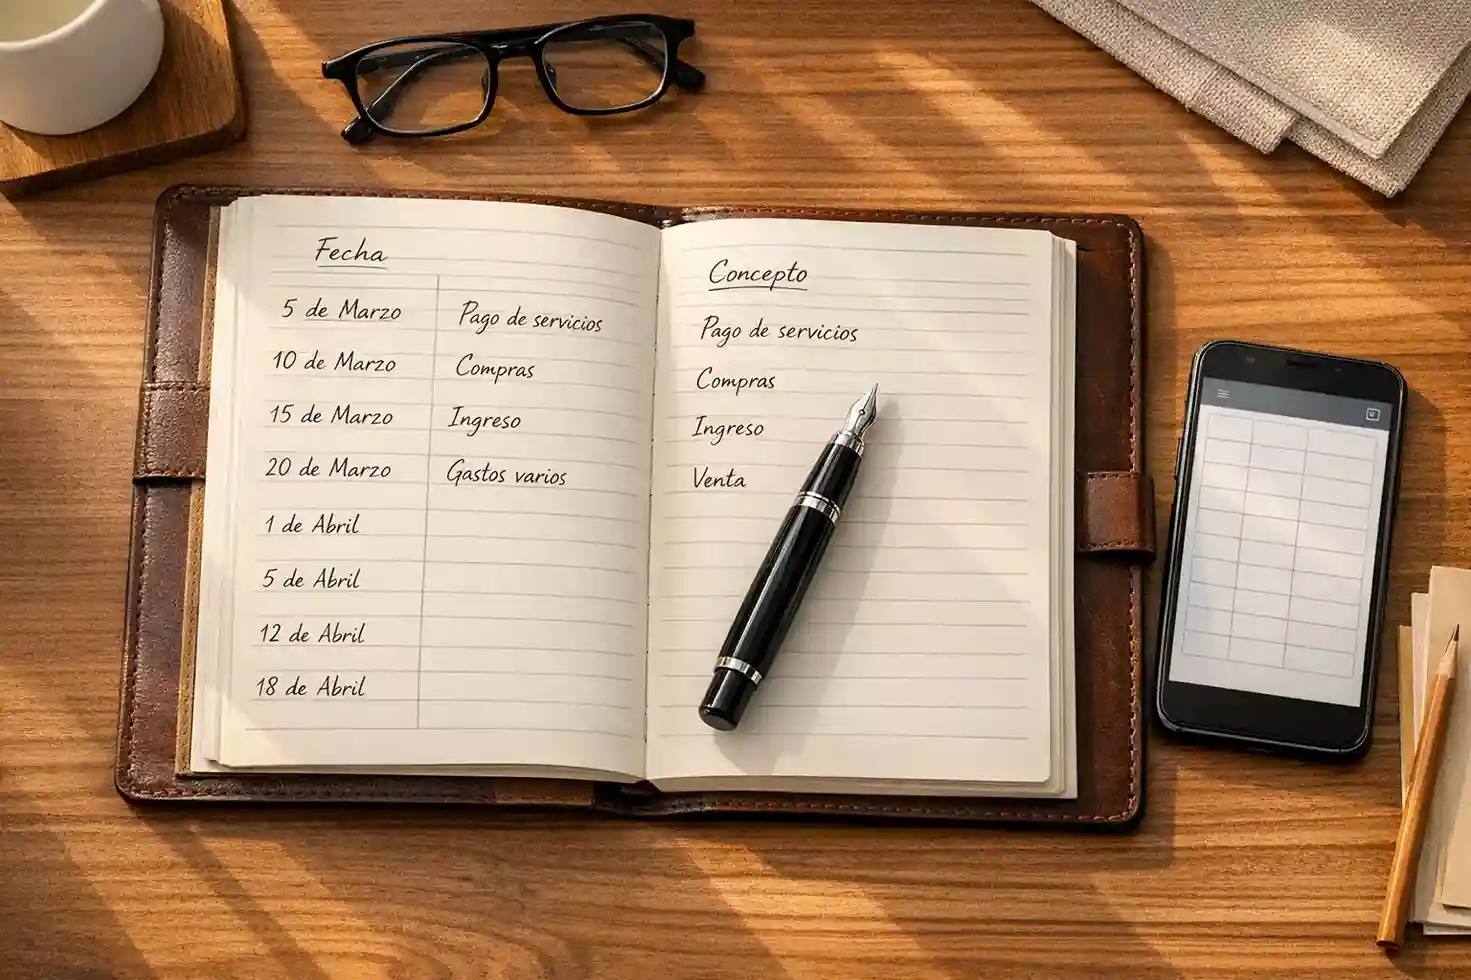 Fecha
5 de Marzo Pago de servicios
10 de Marzo Compras
15 de Marzo Ingreso
20 de Marzo Gastos varios
1 de Abril
5 de Abril
12 de Abril
18 de Abril
Concepto
Pago de servicios
Compras
Ingreso
Venta